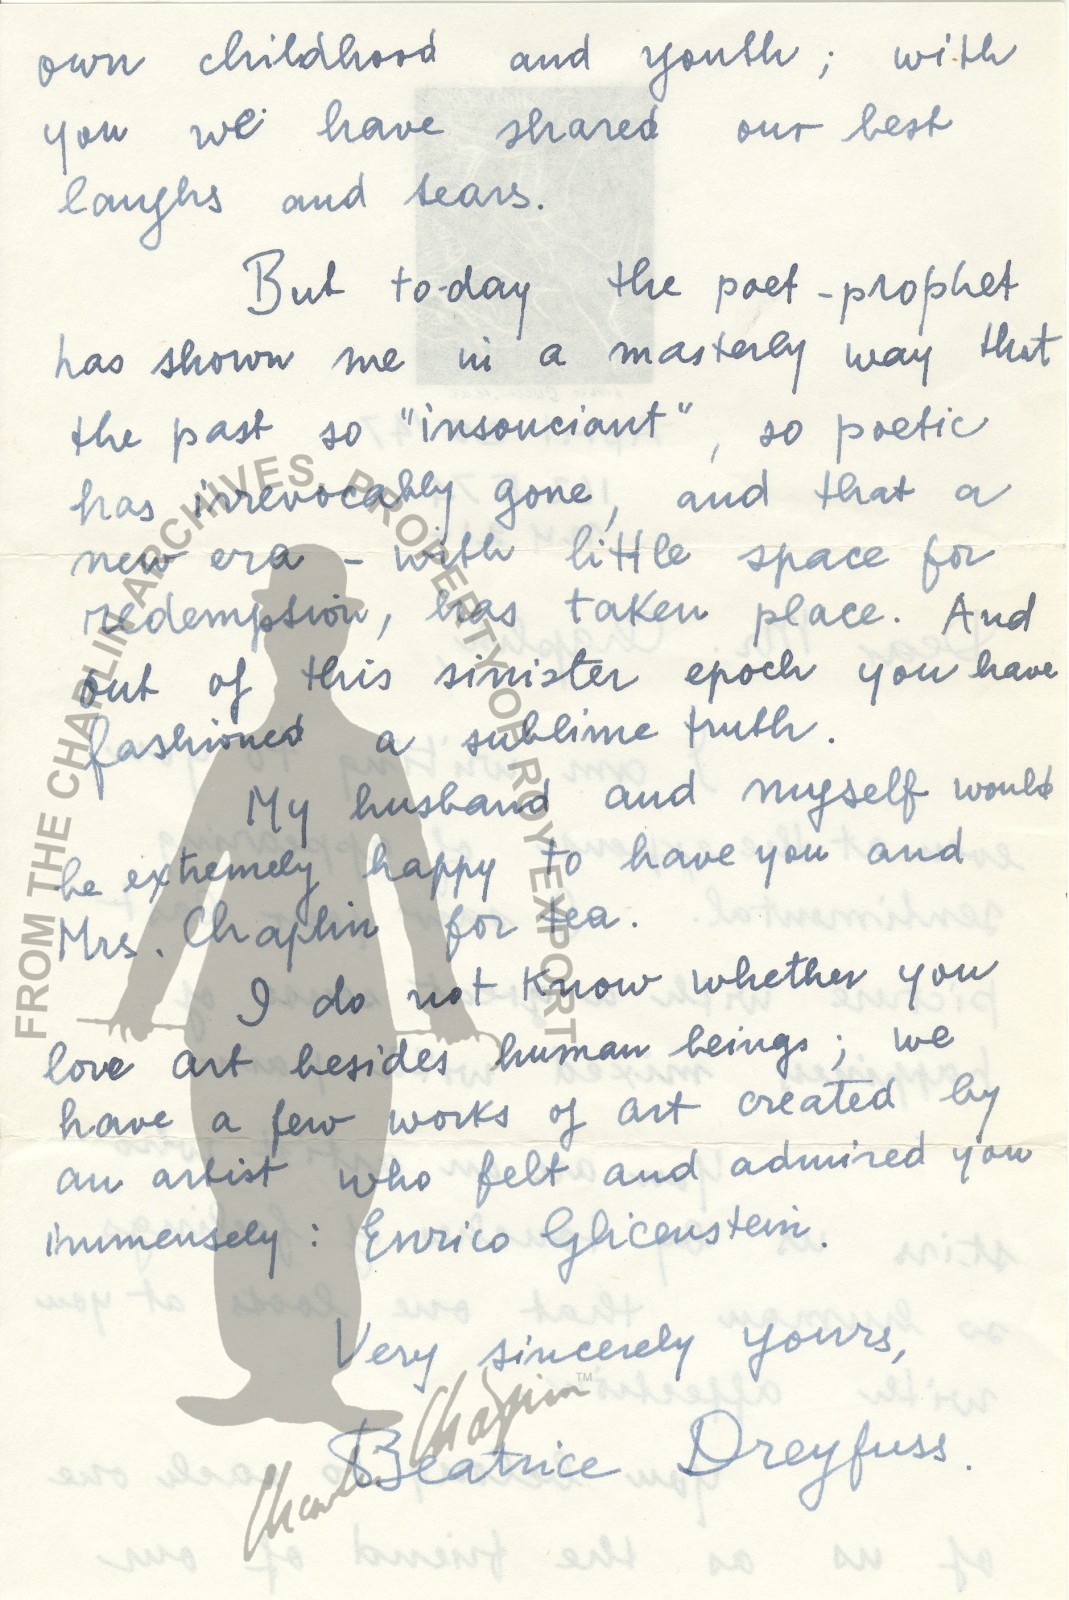 own childhood and youth; with
you we have shared our best
laughs and tears.
But to-day the poet-prophet
has shown me in a masterly way that
the past so "insouciant", so poetic
has irrevocably gone, and that a
new era - with little space for
redemption, has taken place. And
out of this sinister epoch you have
fashioned a sublime truth.
My husband and myself would
be extremely happy to have you and
Mrs. Chaplin for tea.
I do not know whether you
love art besides human beings; we
have a few works of art created by
an artist who felt and admired you
immensely: Enrico Glicenstein.
Very sincerely yours,
Beatrice Dreyfuss.
FROM THE CHAPLIN ARCHIVES PROPERTY OF ROY EXPORT
Charlie Chaplin™